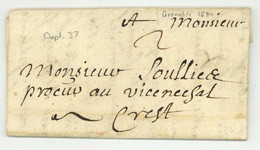 Grenoble 1684
Dept. 37
A Monsieur
2
Monsieur Soulliee
procur au vicenechal
a Crest